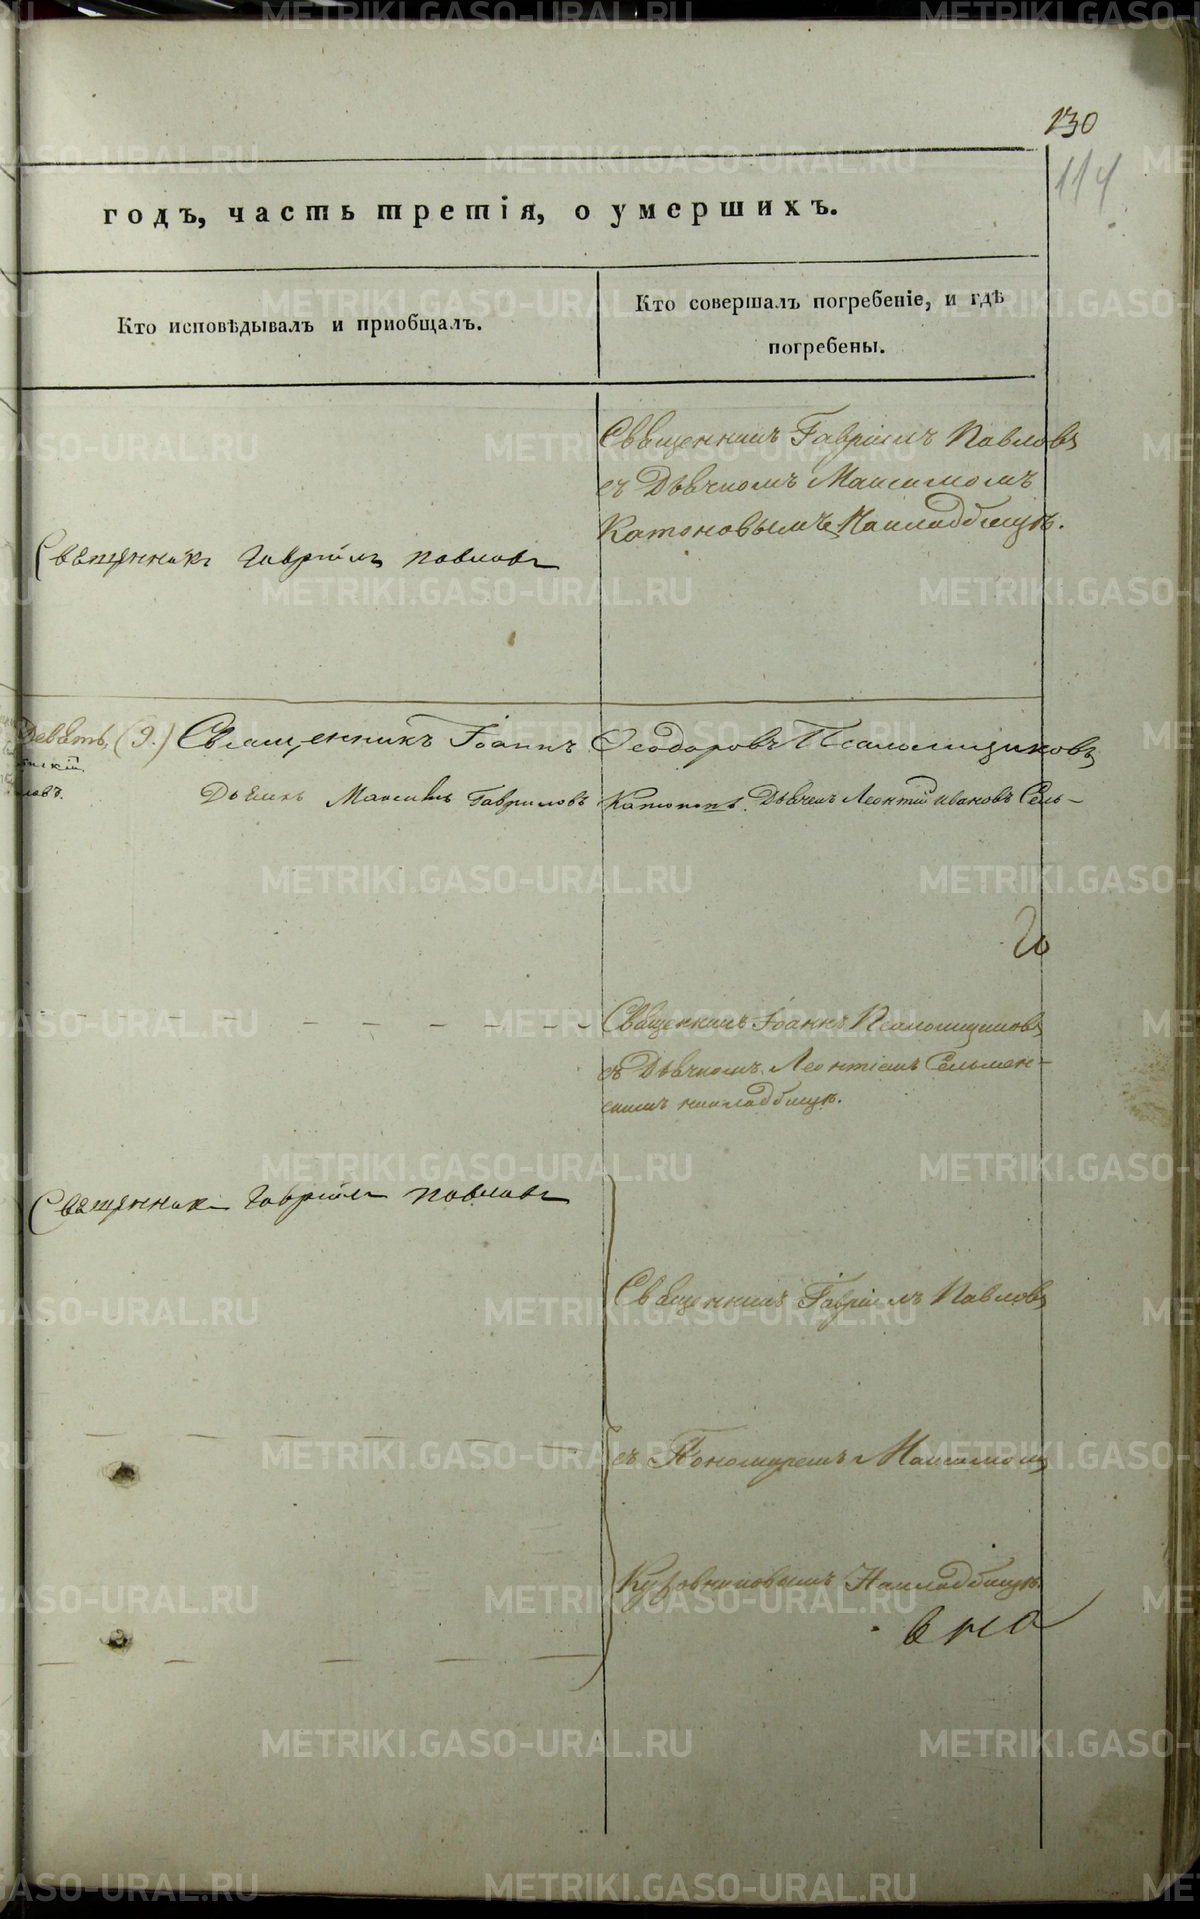 130
114
годъ, часть третія, о умершихъ.
Кто исповѣдывалъ и приобщалъ.
Кто совершалъ погребеніе, и гдѣ
погребены.
Священникъ Гавріилъ Павловъ
съ Дьячкомъ Максимомъ
Катоновымъ На кладбищѣ.
Священникъ Гавріилъ Павловъ
Девять (9.) Священникъ Іоаннъ Ѳеодоровъ Псаломщиковъ
Дьячекъ Максимъ Гавриловъ Катоновъ. Дьячекъ Леонтій Ивановъ Сель-
Священникъ Іоаннъ Псаломщиковъ
съ Дьячкомъ Леонтіемъ Сельмен-
скимъ на кладбищѣ.
Священникъ Гавріилъ Павловъ
Священникъ Гавріилъ Павловъ
съ Пономаремъ Максимомъ
На кладбищѣ.
METRIKI.GASO-URAL.RU